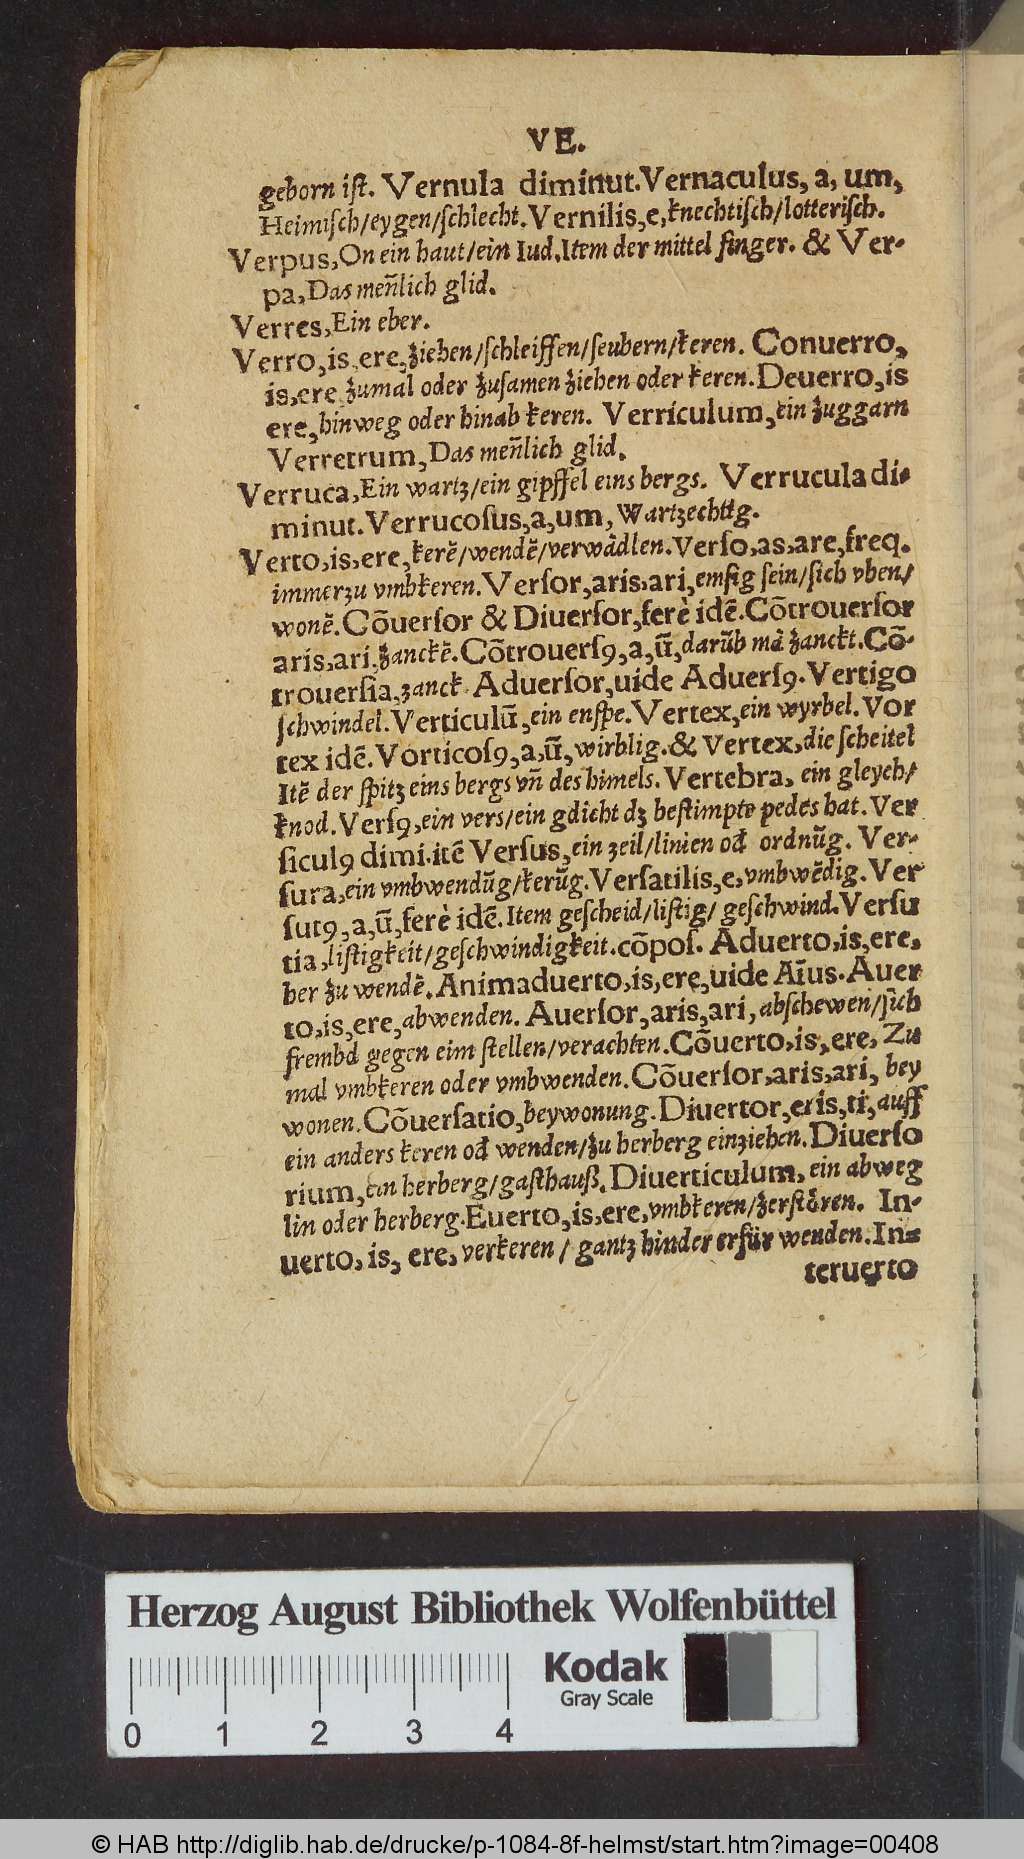 VE.
geborn iſt. Vernula diminut. Vernaculus, a, um,
Heimiſch/eygen/ſchlecht. Vernilis, e, knechtiſch/lotteriſch.
Verpus, On ein haut/ein Iud. Item der mittel finger. & Ver-
pa, Das meñlich glid.
Verres, Ein eber.
Verro, is, ere, ziehen/ſchleiffen/ſeubern/keren. Conuerro,
is, ere, zumal oder zuſamen ziehen oder keren. Deuerro, is
ere, hinweg oder hinab keren. Verriculum, ein zuggarn
Verretrum, Das meñlich glid.
Verruca, Ein wartz/ein gipffel eins bergs. Verrucula di-
minut. Verrucoſus, a, um, Wartzechtig.
Verto, is, ere, kerẽ/wendẽ/verwãdlen. Verſo, as, are, freq.
immerzu vmbkeren. Verſor, aris, ari, emſig ſein/ſich vben/
wonẽ. Cõuerſor & Diuerſor, ferè idẽ. Cõtrouerſor
aris, ari, zanckẽ. Cõtrouerſꝯ, a, ũ, darũb mã zanckt. Cõ-
trouerſia, zanck. Aduerſor, uide Aduerſꝯ. Vertigo
ſchwindel. Verticulũ, ein enſpe. Vertex, ein wyrbel. Vor
tex idẽ. Vorticoſꝯ, a, ũ, wirblig. & Vertex, die ſcheitel
Itẽ der ſpitz eins bergs vñ des himels. Vertebra, ein gleych/
knod. Verſꝯ, ein vers/ein gdicht dz beſtimpte pedes hat. Ver
ſiculꝯ dimi. itẽ Verſus, ein zeil/linien oď ordnũg. Ver-
ſura, ein vmbwendũg/kerũg. Verſatilis, e, vmbwẽdig. Ver
ſutꝯ, a, ũ, ferè idẽ. Item geſcheid/liſtig/ geſchwind. Verſu
tia, liſtigkeit/geſchwindigkeit. cõpoſ. Aduerto, is, ere,
her zu wendẽ. Animaduerto, is, ere, uide Aĩus. Auer
to, is, ere, abwenden. Auerſor, aris, ari, abſchewen/ſich
frembd gegen eim ſtellen/verachten. Cõuerto, is, ere, Zu
mal vmbkeren oder vmbwenden. Cõuerſor, aris, ari, bey
wonen. Cõuerſatio, beywonung. Diuertor, eris, ti, auff
ein anders keren oď wenden/zu herberg einziehen. Diuerſo
rium, ein herberg/gaſthauß. Diuerticulum, ein abweg
lin oder herberg. Euerto, is, ere, vmbkeren/zerſtören. In-
uerto, is, ere, verkeren / gantz hinder erfür wenden. In-
teruerto
Herzog August Bibliothek Wolfenbüttel
Kodak
Gray Scale
0 1 2 3 4
© HAB http://diglib.hab.de/drucke/p-1084-8f-helmst/start.htm?image=00408